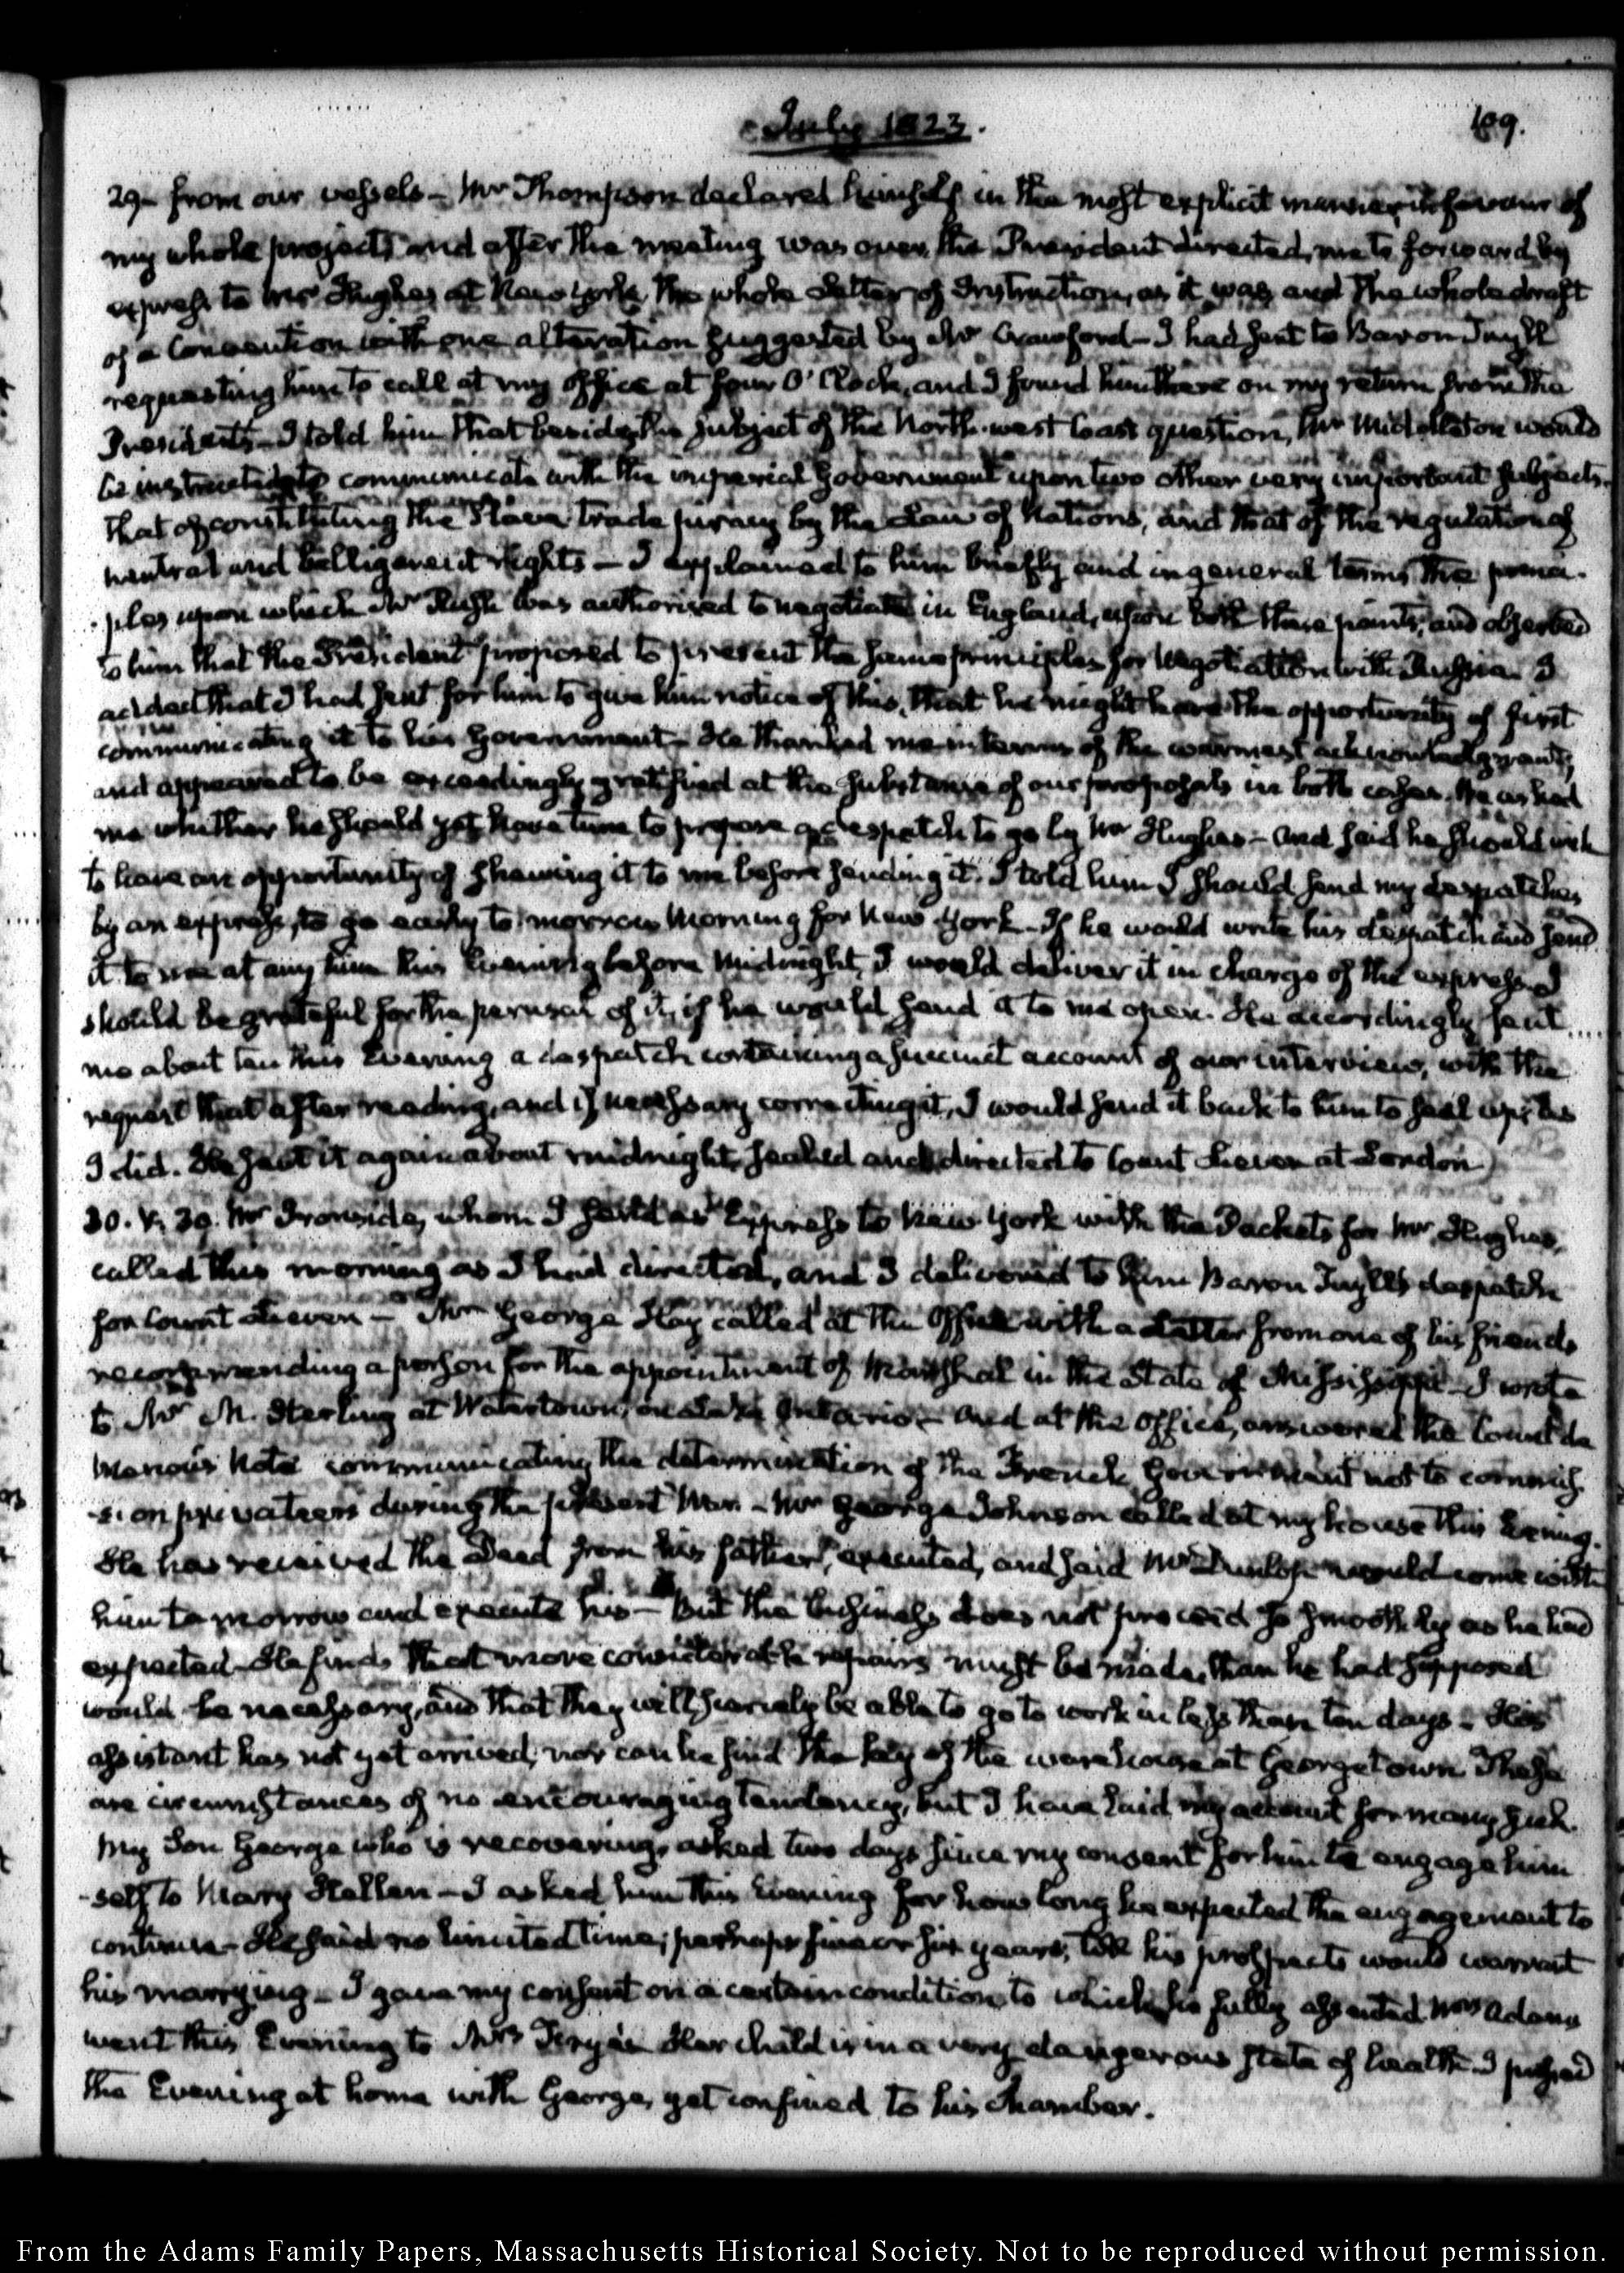 July 1823.
109.
29— from our vessels — Mr Thompson declared himself in the most explicit manner in favour of
my whole project, and after the meeting was over, the President directed me to forward by
express to Mr Hughes at New York, the whole Letter of Instruction, as it was and the whole draft
of a Convention with one alteration suggested by Mr Crawford — I had sent to Baron Tuyll
requesting him to call at my office at four O'Clock, and I found him there on my return from the
President's — I told him that besides the subject of the North-west Coast question, Mr Middleton would
be instructed to communicate with the imperial Government upon two other very important subjects.
that of constituting the Slave trade piracy by the Law of Nations, and that of the regulation of
neutral and belligerent rights — I explained to him briefly and in general terms the princi-
-ples upon which Mr Rush was authorised to negotiate in England, upon both these points, and observed
to him that the President proposed to present the same principles for Negotiation with Russia. I
added that I had sent for him to give him notice of this, that he might have the opportunity of first
communicating it to his Government — He thanked me in terms of the warmest acknowledgment,
and appeared to be exceedingly gratified at the substance of our proposals in both cases. He asked
me whether he should yet have time to prepare a despatch to go by Mr Hughes — and said he should wish
to have an opportunity of shewing it to me before sending it. I told him I should send my despatches
by an express, to go early to-morrow Morning for New York — If he would write his despatch and send
it to me at any time this Evening before Midnight, I would deliver it in charge of the express. I
should be grateful for the perusal of it, if he would send it to me open. He accordingly sent
me about ten this Evening a despatch containing a succinct account of our interview, with the
request that after reading, and if necessary correcting it, I would send it back to him to seal up; as
I did. He sent it again about midnight, sealed and directed to Count Lieven at London
30. V. 30. Mr Ironside, whom I send as Express to New York with the Packets for Mr Hughes,
called this morning as I had directed, and I delivered to him Baron Tuyll's despatch
for Count Lieven — Mr George Hay called at the Office with a Letter from one of his friends
recommending a person for the appointment of Marshal in the State of Mississippi — I wrote
to Mr M. Sterling at Watertown, on Lake Ontario — and at the office, answered the Count de
Menou's Note communicating the determination of the French Government not to commis-
-sion privateers during the present War — Mr George Johnson called at my house this Evening.
He has received the Deed from his father, executed, and said Mr Dunlop would come with
him to-morrow and execute his — But the business does not proceed so smoothly as he had
expected — He finds that more considerable repairs must be made, than he had supposed
would be necessary, and that they will scarcely be able to go to work in less than ten days — His
assistant has not yet arrived, nor can he find the key of the warehouse at Georgetown. These
are circumstances of no encouraging tendency, but I have laid my account for many such.
My Son George who is recovering, asked two days since my consent for him to engage him-
-self to Mary Hellen — I asked him this Evening for how long he expected the engagement to
continue — He said no limited time; perhaps five or six years; till his prospects would warrant
his marrying — I gave my consent on a certain condition to which he fully assented. Mrs Adams
went this Evening to Mrs Frye's. Her child is in a very dangerous state of health. I passed
the Evening at home with George, yet confined to his chamber.
From the Adams Family Papers, Massachusetts Historical Society. Not to be reproduced without permission.